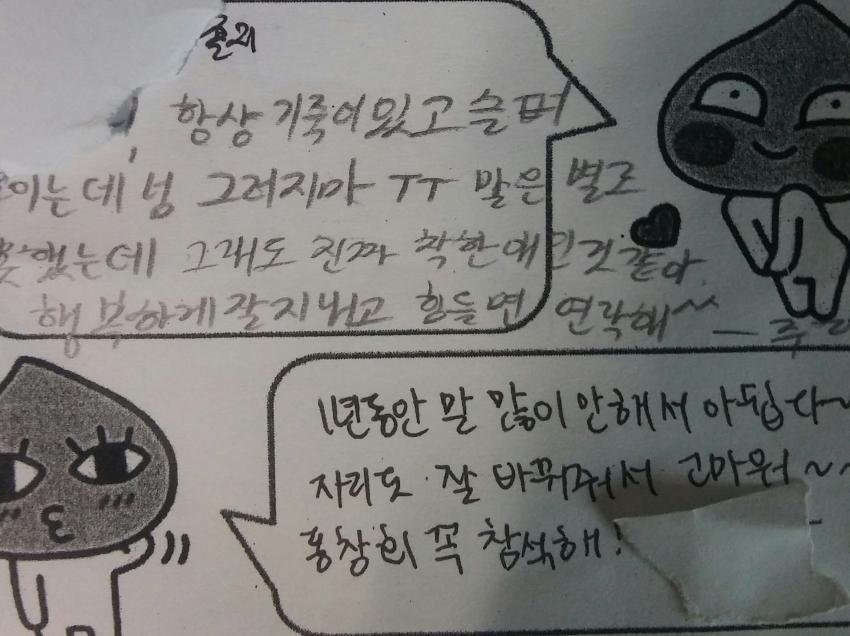 항상 기죽어있고 슬퍼
이는데 넝 그러지마 ㅜㅜ 말은 별로
못했는데 그래도 진짜 착한애인것같아
행복하게 잘지내고 힘들면 연락해~^
1년동안 말 많이 안해서 아쉽다~
자리도 잘 바꿔줘서 고마워~~
홍창회 꼭 참석해!